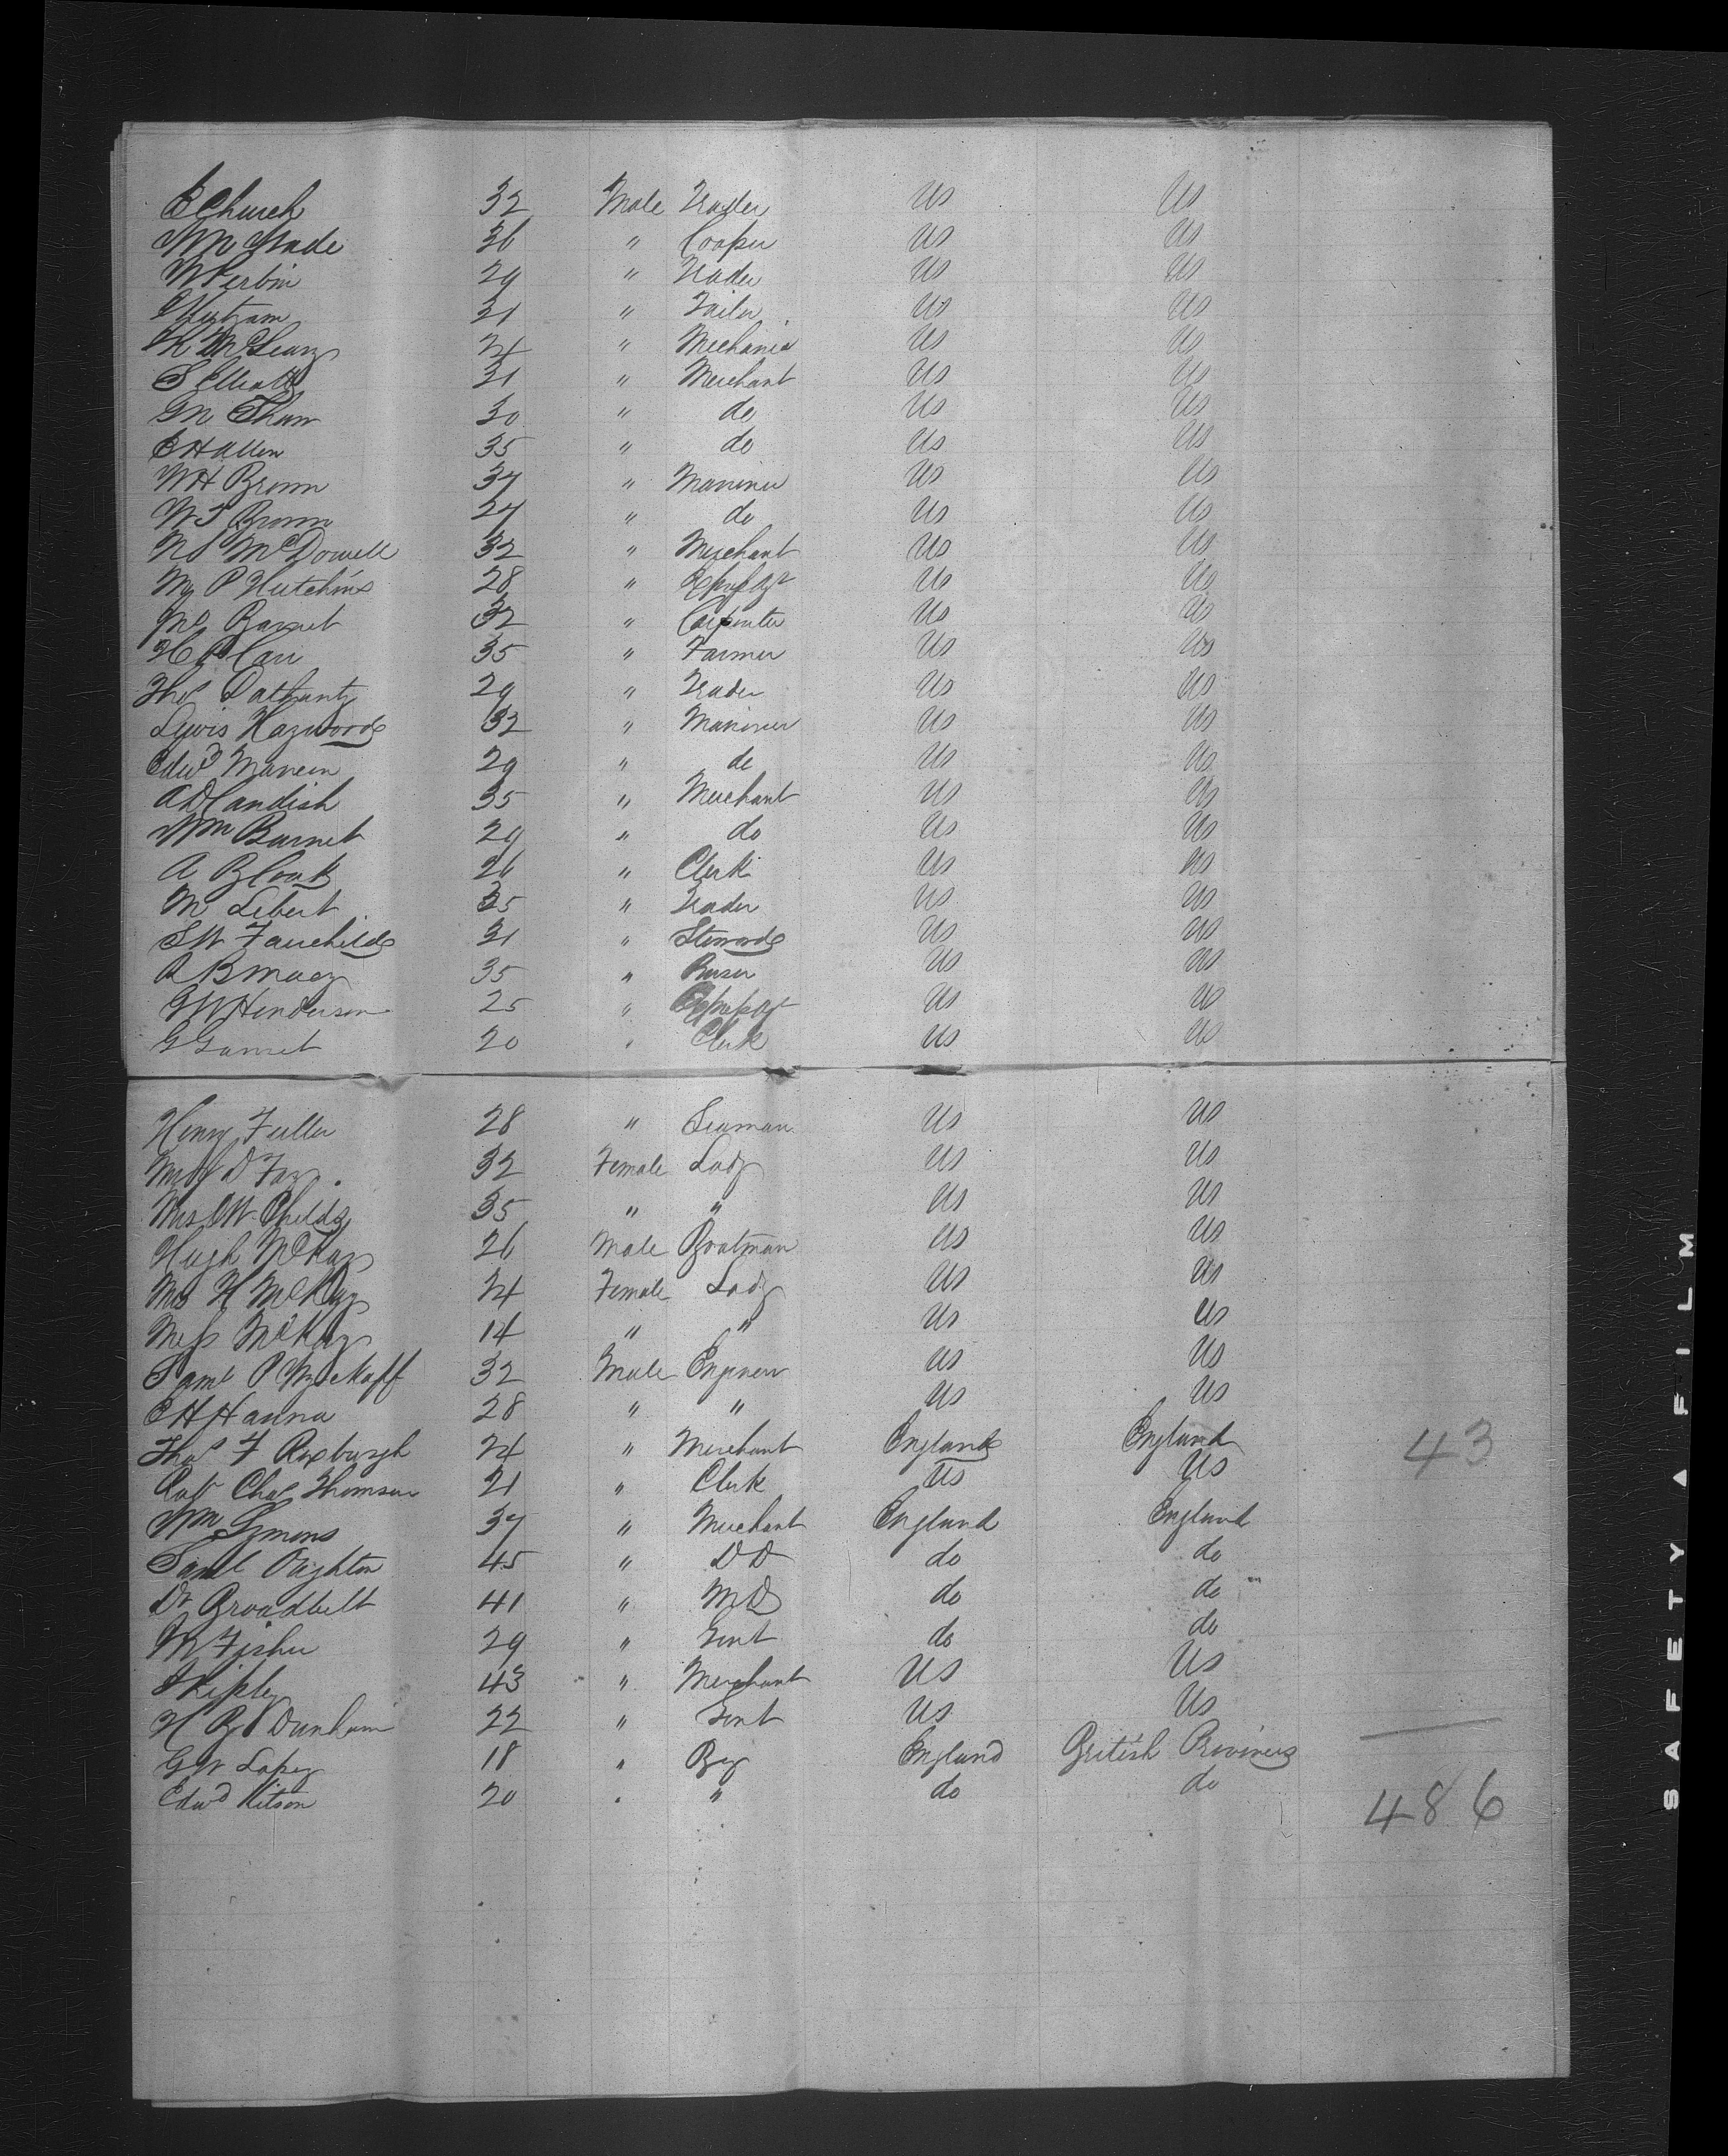 E Church 32 Male Trader US US
Wm Slade 36 " Cooper US US
W Perbin 29 " Trader US US
31 " Tailor US US
K McLeary 24 " Mechanic US US
S Elliott 31 " Merchant US US
Gm Shaw 30 " do US US
E H Allen 35 " do US US
W H Brown 37 " Mariner US US
W S Brown 27 " do US US
McDowell 32 " Merchant US US
P Hutchins 28 " US US
Barnet 32 " Carpenter US US
H P Carr 35 " Farmer US US
Thos 29 " Trader US US
Lewis Haywood 32 " Mariner US US
Edwd Mancen 29 " do US US
A D Candish 35 " Merchant US US
Wm Barnet 29 " do US US
A 26 " Clerk US US
M Libert 35 " Trader US US
S W Fairchild 31 " Steward US US
R B Macy 35 " Purser US US
G W Henderson 25 " US US
G Garnet 20 " Clerk US US
Henry Fuller 28 " Seaman US US
D Fay 32 Female Lady US US
Mrs C W Childs 35 " " US US
Hugh McKay 26 Male Boatman US US
Mrs H McKay 24 Female Lady US US
Miss McKay 14 " " US US
Saml P Wyckoff 32 Male Engineer US US
E H Hanna 28 " " US US
Thos F Roxburgh 24 " Merchant England England 43
Robt Chas Thomson 21 " Clerk US US
Wm Symons 37 " Merchant England England
Saml Oughton 45 " D D do do
Dr Broadbelt 41 " M D do do
M Fisher 29 " Gent do do
Shipley 43 " Merchant US US
H B Dunham 22 " Gent US US
G W Lopez 18 " Boy England British Provinces
Edwd Kitson 20 " " do do
486
SAFETY FILM